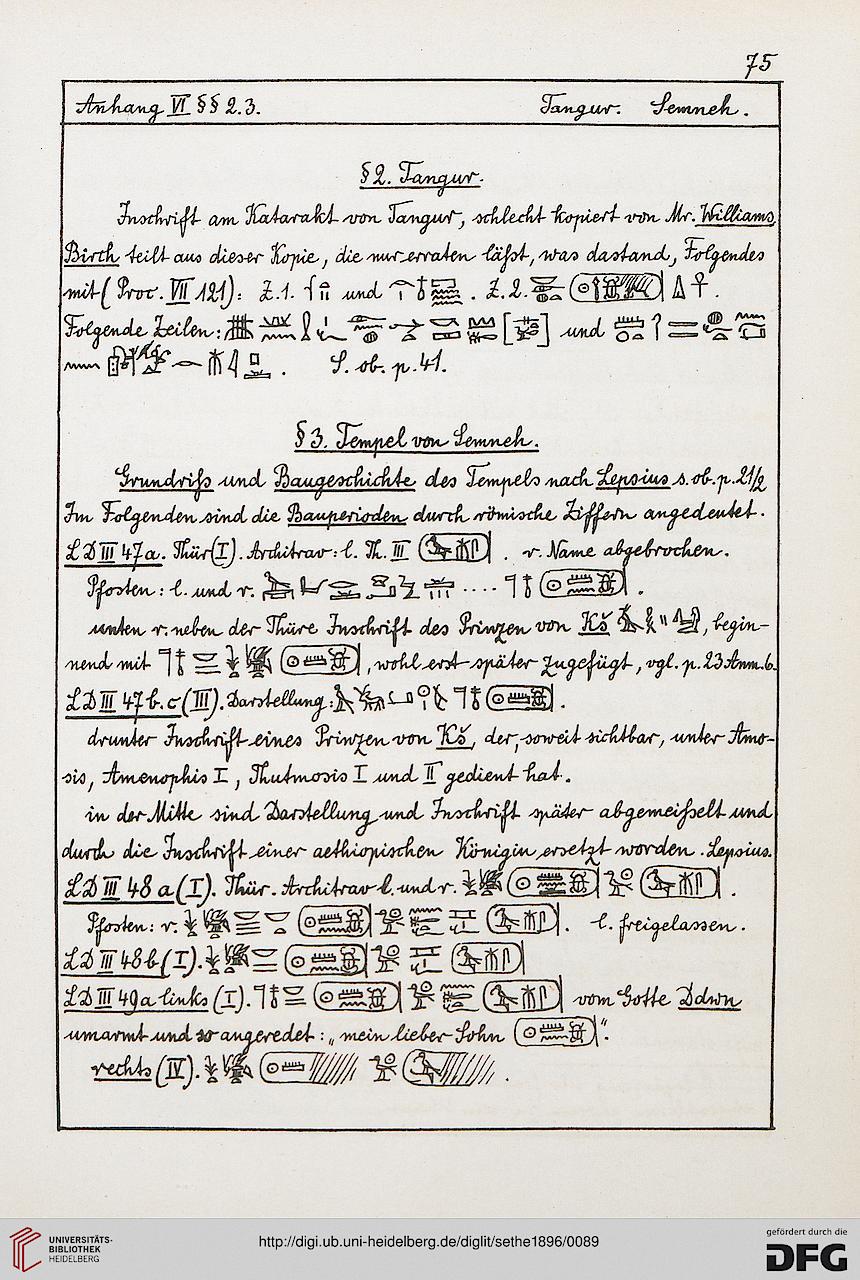 75
Anhang VI §§ 2.3. Tangur. Semneh.
§ 2. Tangur.
Inschrift am Katarakt von Tangur, schlecht kopiert von Mr. Williams
Birch teilt aus dieser Kopie, die nur erraten läßt, was dastand, Folgendes
mit (Proc. VII 121): Z. 1. und . Z. 2. .
Folgende Zeilen: [ ] und
. S. ob. p. 41.
§ 3. Tempel von Semneh.
Grundriß und Baugeschichte des Tempels nach Lepsius s. ob. p. 21/2
Im Folgenden sind die Bauperioden durch römische Ziffern angedeutet.
LD III 47a. Thür (I). Architrav: l. Th. III . r. Name abgebrochen.
Pfosten: l. und r. ..... .
unten r. neben der Thüre Inschrift des Prinzen von Kš , begin-
nend mit , wohl erst später zugefügt, vgl. p. 23 Anm. 6.
LD III 47 b. c (III). Darstellung: .
drunter Inschrift eines Prinzen von Kš, der, soweit sichtbar, unter Amo-
sis, Amenophis I, Thutmosis I und II gedient hat.
in der Mitte sind Darstellung und Inschrift später abgemeißelt und
durch die Inschrift einer aethiopischen Königin ersetzt worden. Lepsius.
LD III 48 a (I). Thür. Architrav l. und r. .
Pfosten: r. . l. freigelassen.
LD III 48 b (I).
LD III 49a links (I). vom Gotte Ddwn
umarmt und so angeredet: „mein lieber Sohn “.
rechts (IV). .
UNIVERSITÄTS-
BIBLIOTHEK
HEIDELBERG
http://digi.ub.uni-heidelberg.de/diglit/sethe1896/0089
gefördert durch die
DFG